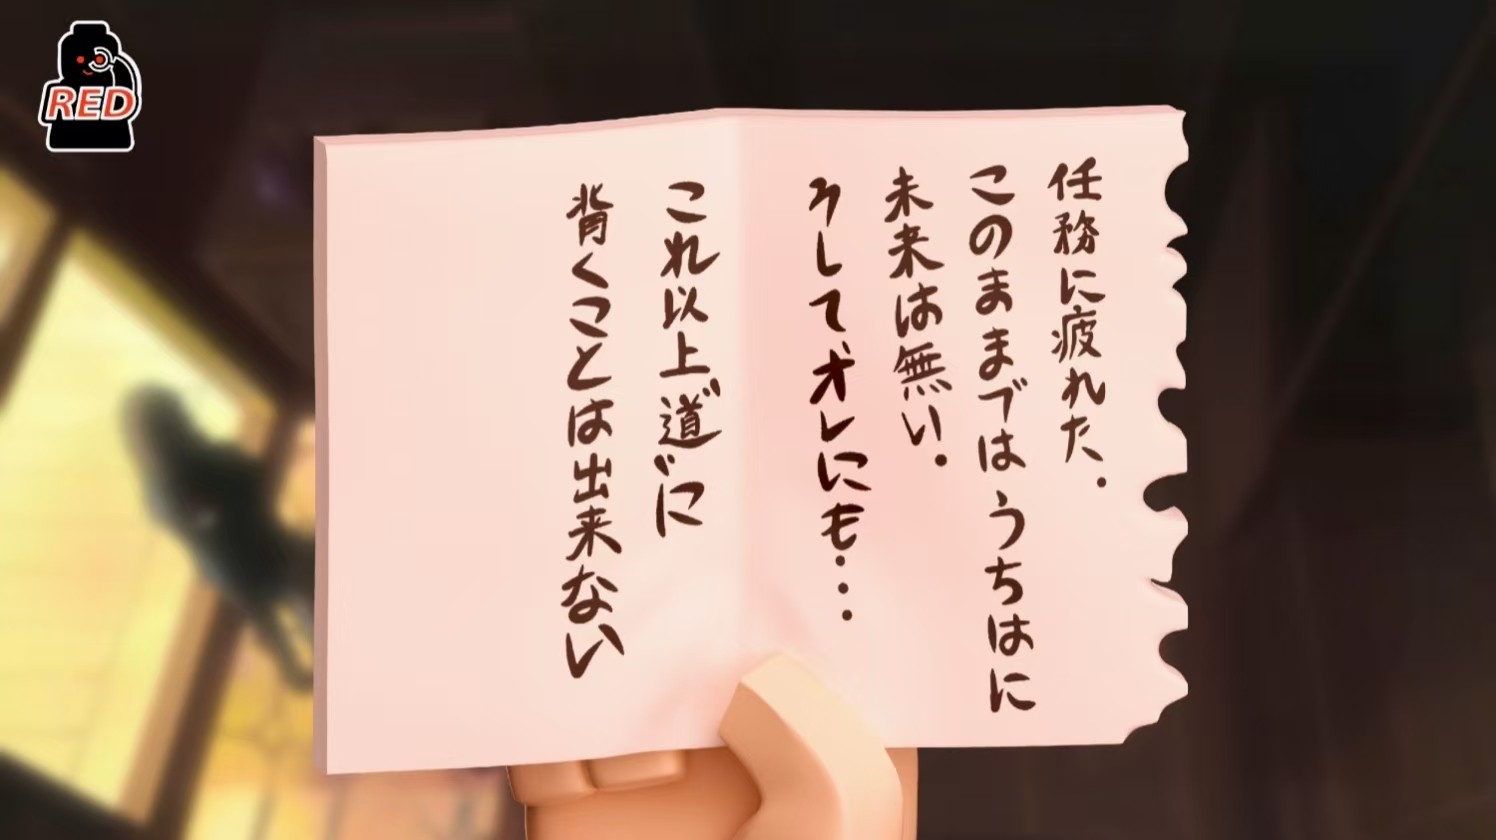 RED
任務に疲れた.
このままブはうちはに
未来は無い.
そしてオレにも...
これ以上〝道〟に
背くことは出来ない